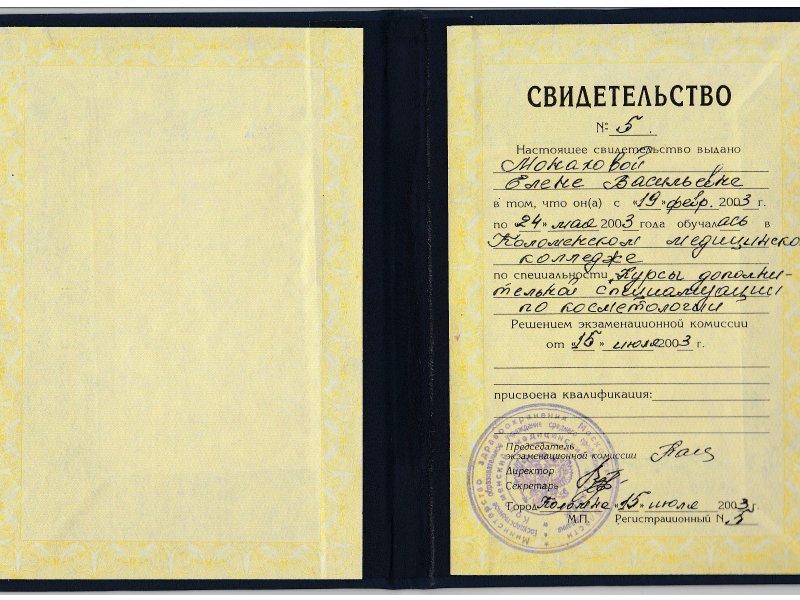 СВИДЕТЕЛЬСТВО
№ 5.
Настоящее свидетельство выдано
Монаховой
Елене Васильевне
в том, что он(а) с «19» февр. 2003 г.
по «24» мая 2003 года обучалась в
Коломенском медицинско
колледже
по специальности Курсы дополни-
тельной специализации
по косметологии
Решением экзаменационной комиссии
от «15» июля 2003 г.
присвоена квалификация:
Председатель
экзаменационной комиссии
Директор
Секретарь
Город Коломна «15» июля 2003 г.
М.П. Регистрационный N 5
Министерство здравоохранения Моск